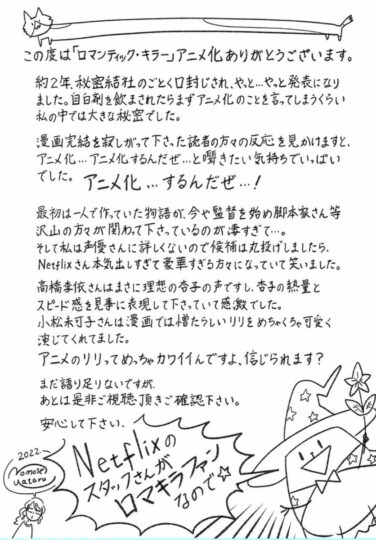 この度は「ロマンティック・キラー」アニメ化ありがとうございます。
約2年、秘密結社のごとく口封じされ、やっと…やっと発表になり
ました。自白剤を飲まされたらまずアニメ化のことを言ってしまうくらい
私の中では大きな秘密でした。
漫画完結を寂しがって下さった読者の方々の反応を見かけますと、
アニメ化…アニメ化するんだぜ…と囁きたい気持ちでいっぱい
でした。アニメ化…するんだぜ…!
最初は一人で作っていた物語が、今や監督を始め脚本家さん等
沢山の方々が関わって下さっているのが凄すぎて…。
そして私は声優さんに詳しくないので候補は丸投げしましたら、
Netflixさん本気出しすぎて豪華すぎる方々になっていて笑いました。
高橋李依さんはまさに理想の杏子の声ですし、杏子の熱量と
スピード感を見事に表現して下さっていて感激でした。
小松未可子さんは漫画では憎たらしいリリをめちゃくちゃ可愛く
演じてくれてました。
アニメのリリってめっちゃカワイイんですよ、信じられます?
まだ語り足りないですが、
あとは是非ご視聴頂きご確認下さい。
安心して下さい、
Netflixの
スタッフさんが
ロマキラファン
なので☆
2022
Momose
Wataru